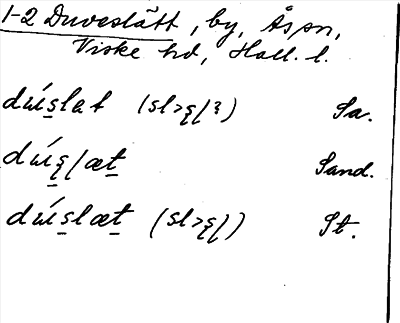 1-2 Duveslätt, by, Åspn,
Viske hd, Hall. l.
dẃs̲lat (sl>ʂʃ?) Sa.
dẃʂ̲ʃæt̲ Sand.
dẃs̲læt̲ (sl>ʂʃ) St.